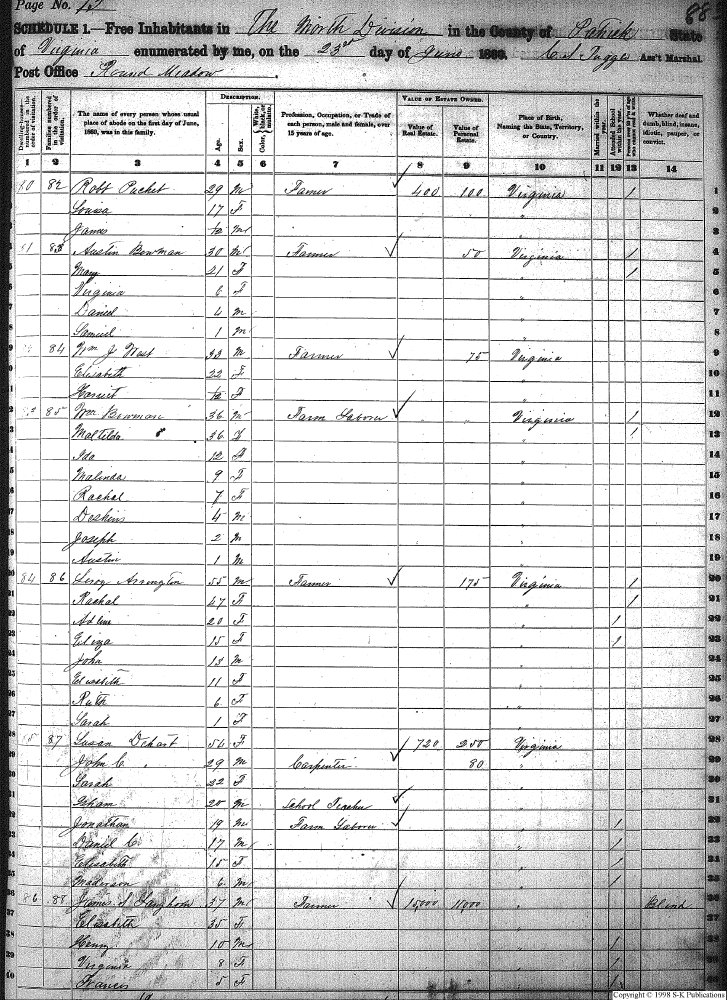 Page No. 13
88
SCHEDULE 1.—Free Inhabitants in The North Division in the County of Patrick State
of Virginia enumerated by me, on the 23rd day of June 1860. Ass't Marshal
Post Office Round Meadow.
Dwelling-houses numbered in the order of visitation. Families numbered in the order of visitation. The name of every person whose usual place of abode on the first day of June, 1860, was in this family. DESCRIPTION. Age. Sex. Color, White, black, or mulatto. Profession, Occupation, or Trade of each person, male and female, over 15 years of age. VALUE OF ESTATE OWNED. Value of Real Estate. Value of Personal Estate. Place of Birth, Naming the State, Territory, or Country. Married within the year. Attended School within the year. Whether deaf and dumb, blind, insane, idiotic, pauper, or convict.
1 2 3 4 5 6 7 8 9 10 11 12 13 14
80 82 Robt Pucket 29 M Farmer 400 100 Virginia / 1
Louisa 17 F " 2
James M " 3
81 83 Austin Bowman 30 M Farmer 50 Virginia / 4
Mary 21 F " / 5
Virginia 6 F " 6
Daniel 4 M " 7
Samuel 1 M " 8
84 Wm J West 33 M Farmer 75 Virginia 9
Elisabeth 22 F " 10
Harriet F " 11
83 85 Wm Bowman 36 M Farm Laborer " " Virginia / 12
Matilda 36 F " / 13
Ida 12 F " 14
Malinda 9 F " 15
Rachal 7 F " 16
Deskins 4 M " 17
Joseph 2 M " 18
Austin 1 M " 19
84 86 Leroy Arrington 55 M Farmer 175 Virginia / 20
Rachal 47 F " / 21
Adline 20 F " / 22
Eliza 15 F " / 23
John 13 M " 24
Elisabeth 11 F " 25
Ruth 6 F " 26
Sarah 1 F " 27
85 87 Susan Dehart 54 F 720 250 Virginia 28
John C 29 M Carpenter 80 " 29
Sarah 22 F " 30
Isham 20 M School Teacher " 31
Jonathan 19 M Farm Laborer " / 32
Daniel C 17 M " / 33
Elisabeth 15 F " / 34
Maderson 6 M " / 35
86 88 James S Langhorn 37 M Farmer 15,000 11,000 " Blind 36
Elisabeth 35 F " 37
Henry 10 M " / 38
Virginia 8 F " / 39
Francis 5 F " / 40
Copyright © 1998 S-K Publications